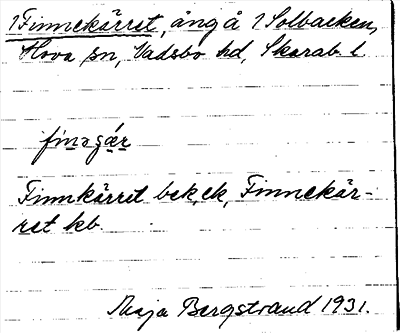 1 Finnekärret, äng å 1 Solbacken,
Hova sn, Vadsbo hd, Skarab. l
finəgǽr
Finnkärret bek, ek, Finnekär-
ret kb.
Maja Bergstrand 1931.